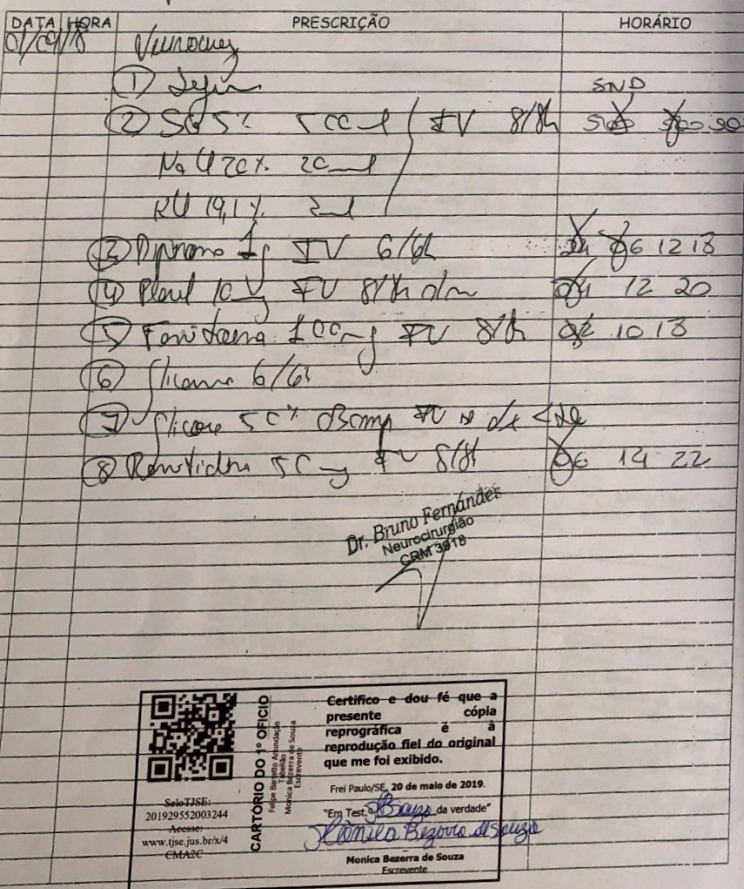 DATA HORA PRESCRIÇÃO HORÁRIO
01/09/18 Neurocirug
① SND
② SG 5% 500 ml IV 8/8h
NaCl 20% 20 ml
KCl 19,1%
③ Dipirona 1g IV 6/6h 06 12 18
④ Plasil 10mg IV 8/8h 04 12 20
⑤ Fenitoina 100mg IV 8/8h 02 10 18
⑥ Glicemia 6/6h
⑦ Glicose 50% IV
⑧ Ranitidina 50mg IV 8/8h 06 14 22
Dr. Bruno Fernándes
Neurocirurgião
CRM 3918
SeloTJSE:
201929552003244
Acesse:
www.tjse.jus.br/x/4
CMA2C
CARTÓRIO DO 1º OFICIO
Felipe Bersetto Anunciação
Tabelião
Monica Bezerra de Souza
Escrevente
Certifico e dou fé que a
presente cópia
reprográfica é à
reprodução fiel do original
que me foi exibido.
Frei Paulo/SE, 20 de maio de 2019.
"Em Test.º da verdade"
Monica Bezerra de Souza
Monica Bezerra de Souza
Escrevente